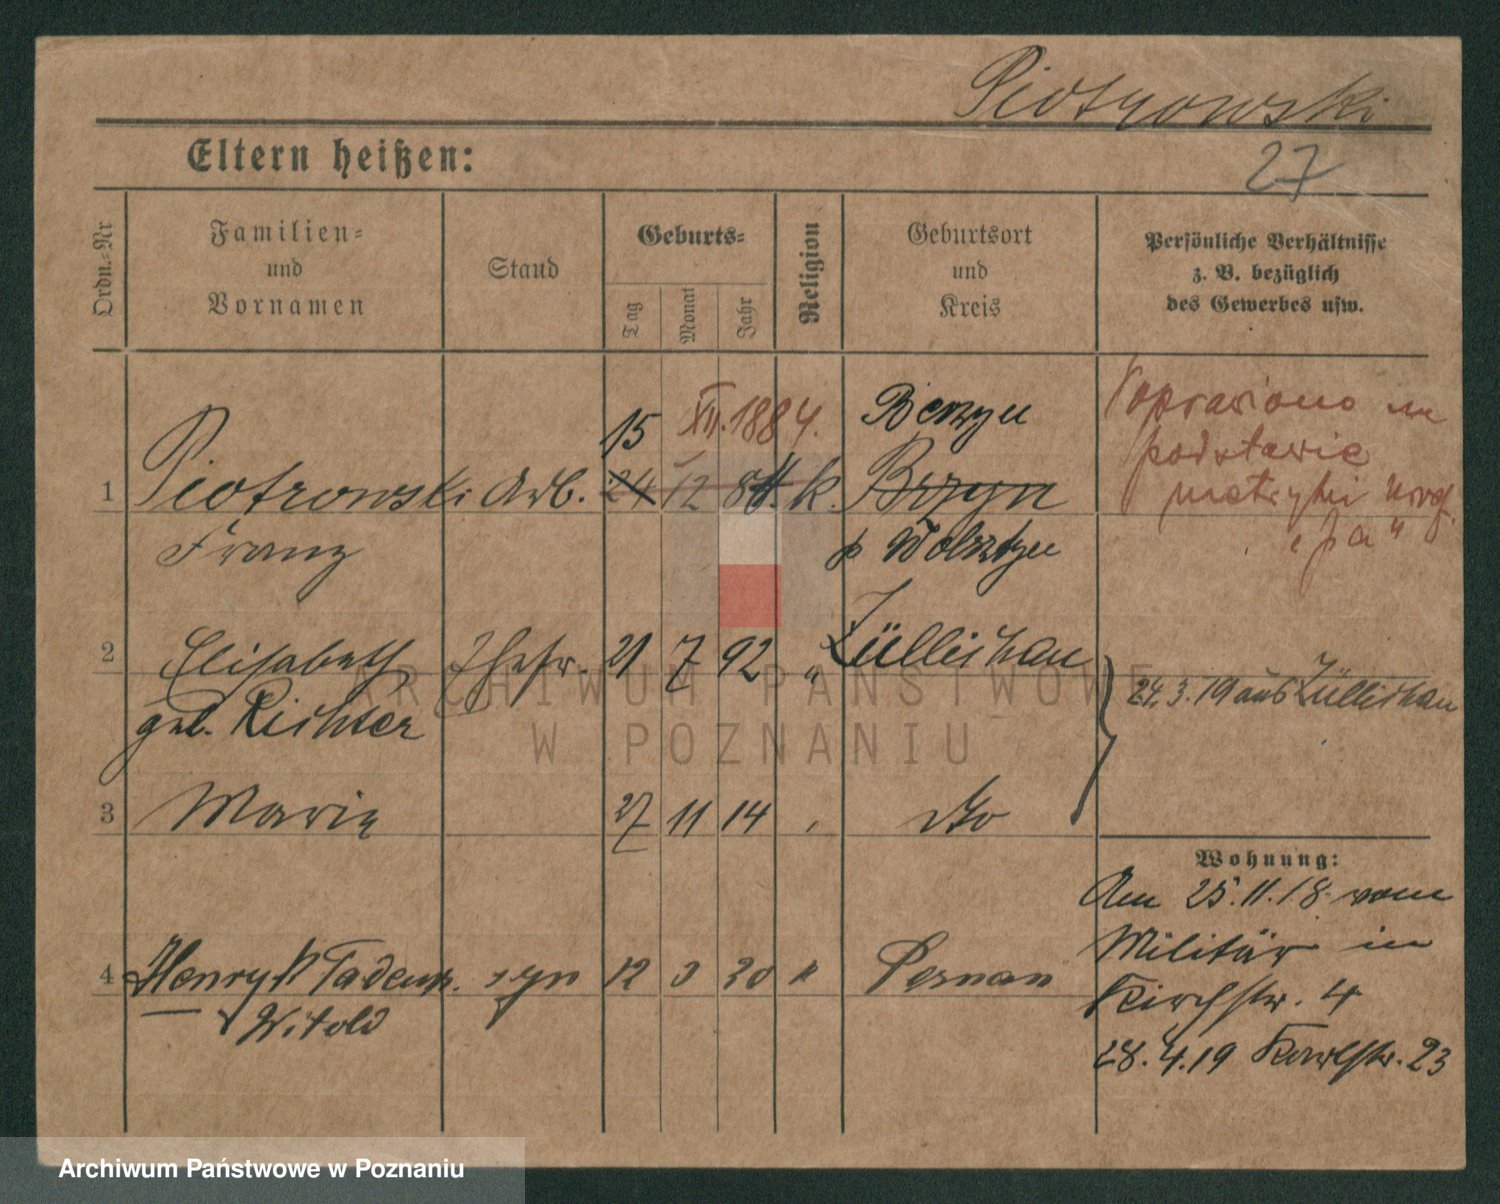 Piotrowski
27
Eltern heißen:
Ordn.-Nr
Familien-
und
Vornamen
Stand
Geburts-
Tag
Monat
Jahr
Religion
Geburtsort
und
Kreis
Persönliche Verhältnisse
z. B. bezüglich
des Gewerbes usw.
15 XII. 1884. Berzyn
1 Piotrowski Arb. 24 12 84 k. Brzyn
Franz p Wolsztyn
Poprawiono na
podstawie
metryki urog.
"Pa"
2 Elisabeth Ehefr. 21 7 92 " Züllichau
geb. Richter
24.3.19 aus Züllichau
3 Marie 27 11 14 , do
Wohnung:
Am 25.11.18 vom
Militär in
Kirchstr. 4
28.4.19 Karlstr. 23
4 Henryk Tadeusz syn 12 3 20 " Poznan
Witold
ARCHIWUM PAŃSTWOWE
W POZNANIU
Archiwum Państwowe w Poznaniu